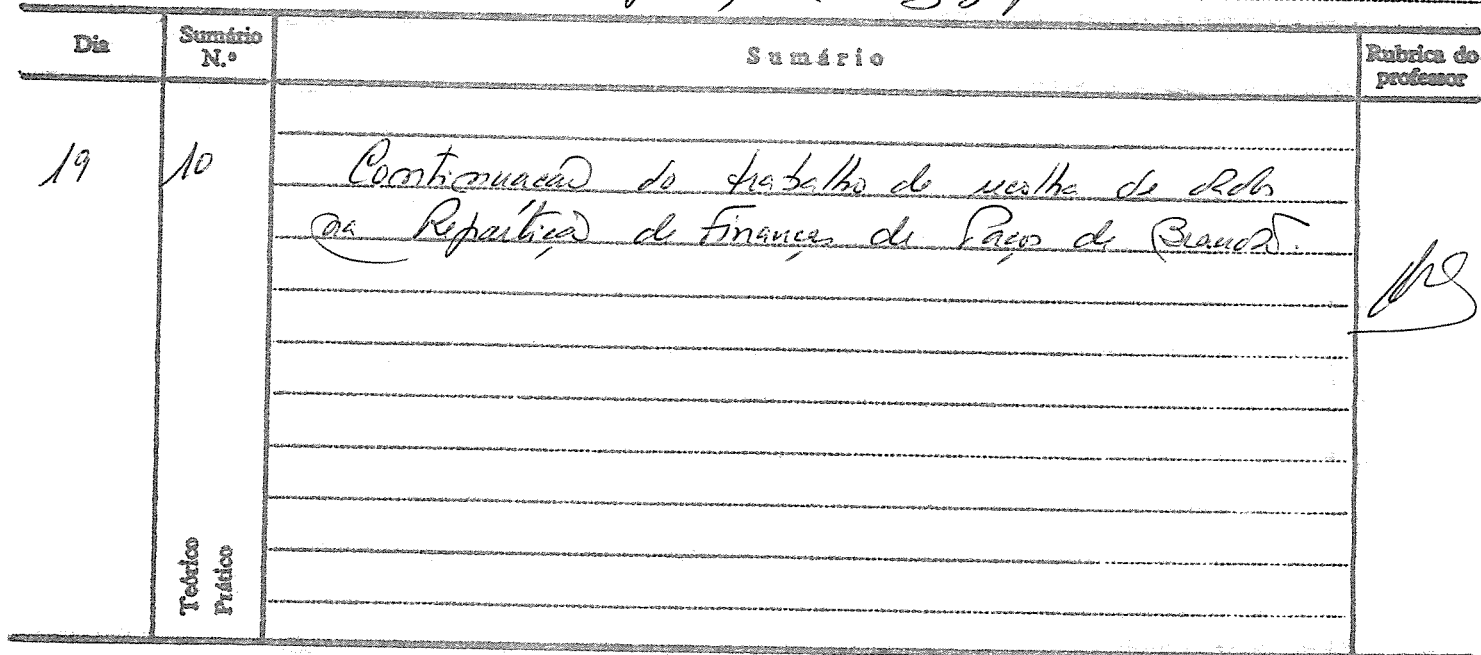 Dia Sumário N.º Sumário Rubrica do professor
19 10 Continuação do trabalho de recolha de dados
na Repartição de Finanças de Paços de Brandão.
Teórico
Prático